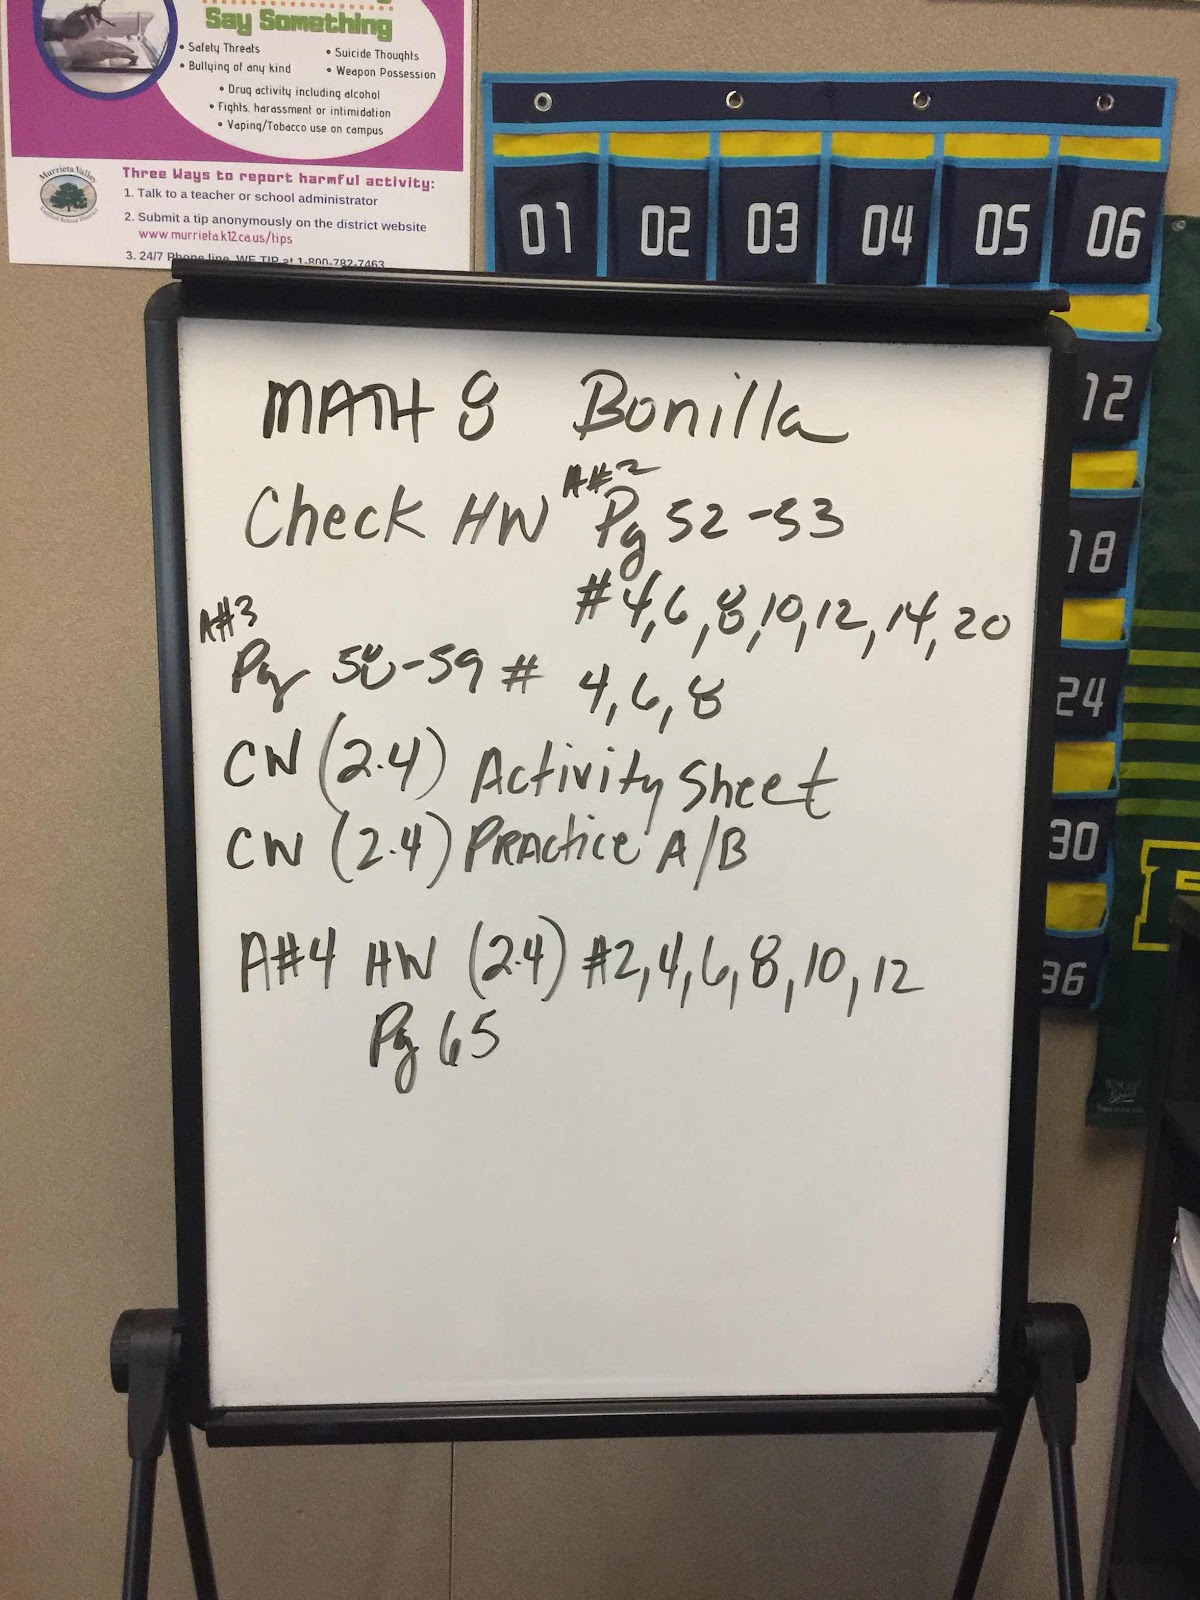 Say Something
• Safety Threats
• Bullying of any kind
• Suicide Thoughts
• Weapon Possession
• Drug activity including alcohol
• Fights, harassment or intimidation
• Vaping/Tobacco use on campus
Murrieta Valley
Unified School District
Three Ways to report harmful activity:
1. Talk to a teacher or school administrator
2. Submit a tip anonymously on the district website
www.murrieta.k12.ca.us/tips
3. 24/7 Phone line, WE TIP at 1-800-782-7463
01 02 03 04 05 06
12
18
24
30
36
MATH 8 Bonilla
A#2
Check HW Pg 52-53
#4,6,8,10,12,14,20
A#3
Pg 58-59 # 4,6,8
CW (2.4) Activity Sheet
CW (2.4) Practice A/B
A#4 HW (2.4) #2,4,6,8,10,12
Pg 65